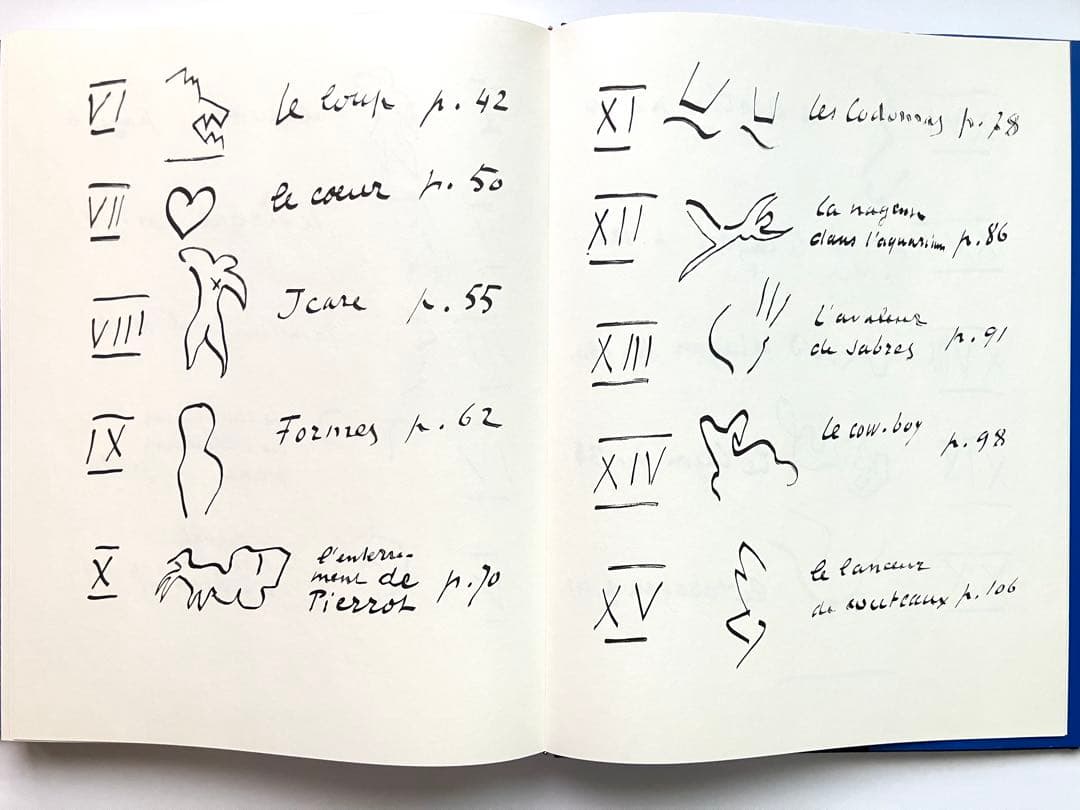 VI le loup p. 42
VII le coeur p. 50
VIII Icare p. 55
IX Formes p. 62
X l'enterre-
ment de
Pierrot p. 70
XI les Codomas p. 78
XII la nageuse
dans l'aquarium p. 86
XIII l'avaleur
de sabres p. 91
XIV le cow-boy p. 98
XV le lanceur
de couteaux p. 106